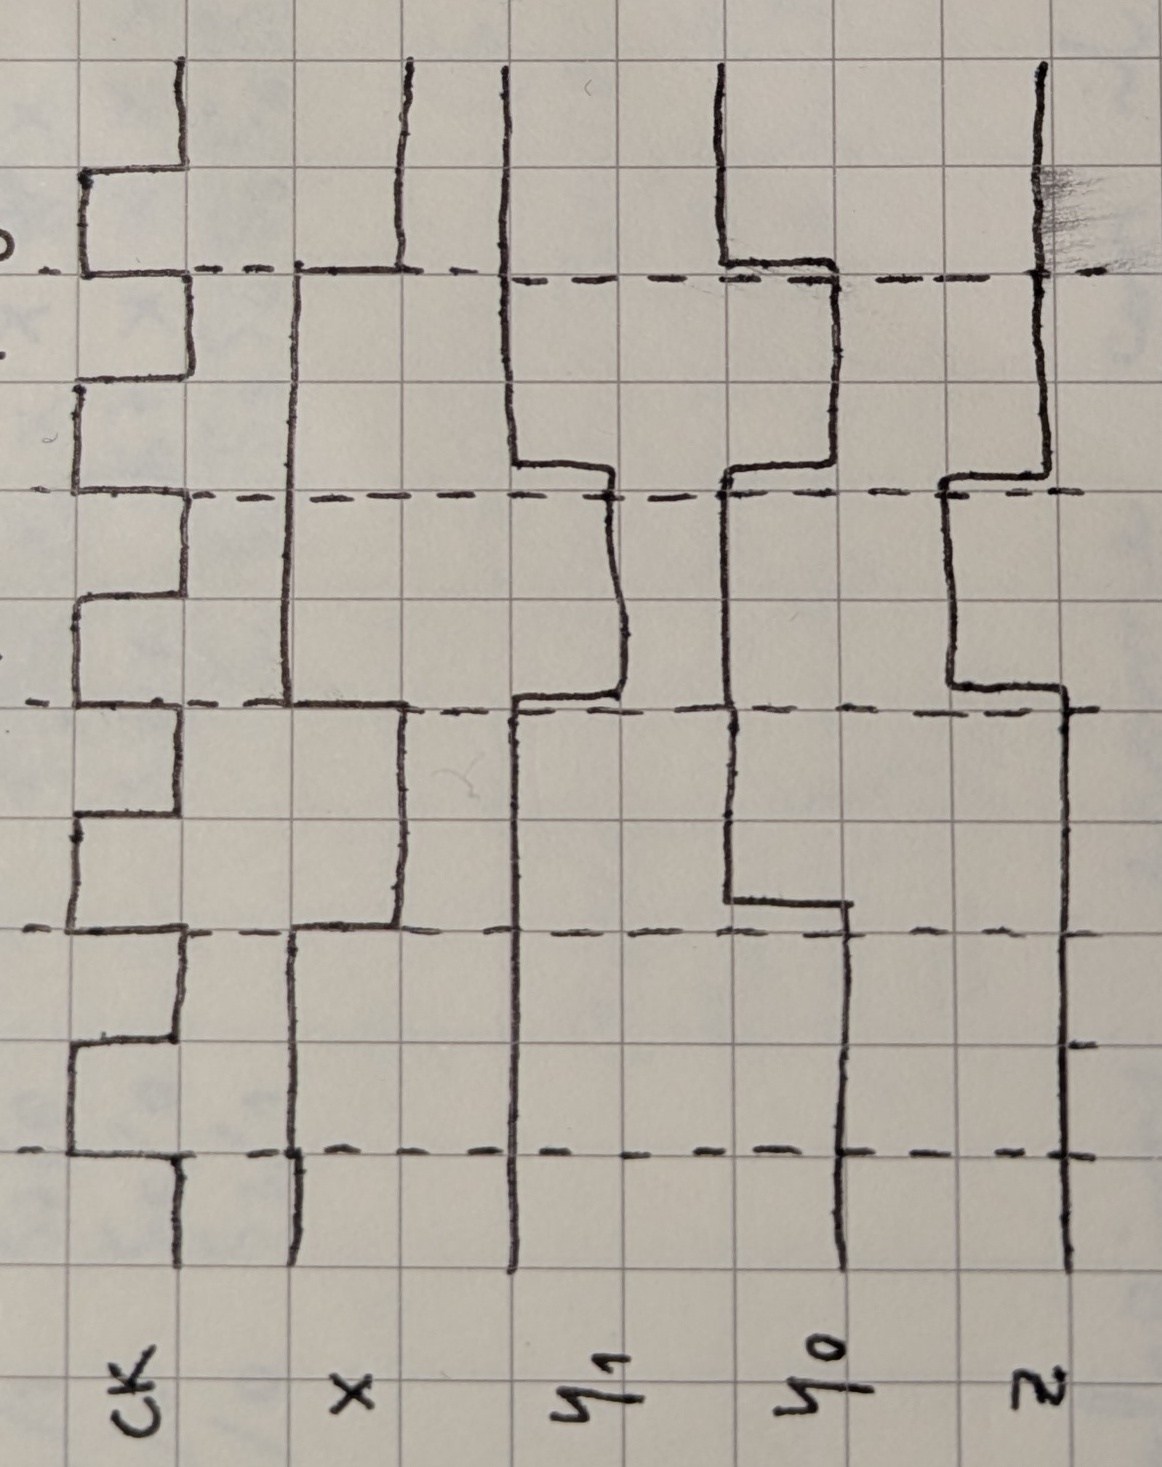 CK
x
y1
y0
z